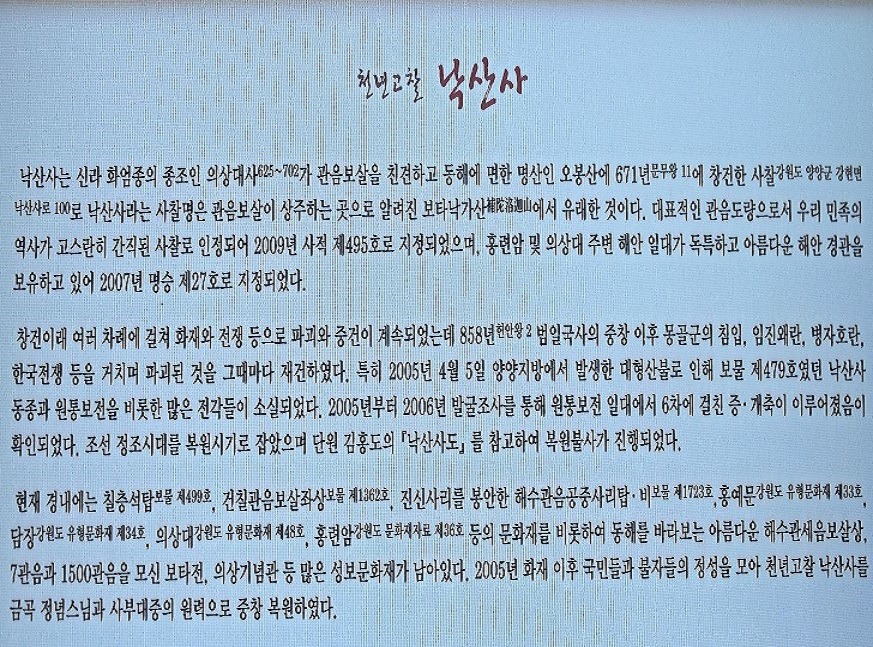 천년고찰 낙산사
낙산사는 신라 화엄종의 종조인 의상대사625~702가 관음보살을 친견하고 동해에 면한 명산인 오봉산에 671년문무왕 11에 창건한 사찰강원도 양양군 강현면
낙산사로 100로 낙산사라는 사찰명은 관음보살이 상주하는 곳으로 알려진 보타낙가산補陀洛迦山에서 유래한 것이다. 대표적인 관음도량으로서 우리 민족의
역사가 고스란히 간직된 사찰로 인정되어 2009년 사적 제495호로 지정되었으며, 홍련암 및 의상대 주변 해안 일대가 독특하고 아름다운 해안 경관을
보유하고 있어 2007년 명승 제27호로 지정되었다.
창건이래 여러 차례에 걸쳐 화재와 전쟁 등으로 파괴와 중건이 계속되었는데 858년헌안왕 2 범일국사의 중창 이후 몽골군의 침입, 임진왜란, 병자호란,
한국전쟁 등을 거치며 파괴된 것을 그때마다 재건하였다. 특히 2005년 4월 5일 양양지방에서 발생한 대형산불로 인해 보물 제479호였던 낙산사
동종과 원통보전을 비롯한 많은 전각들이 소실되었다. 2005년부터 2006년 발굴조사를 통해 원통보전 일대에서 6차에 걸친 증·개축이 이루어졌음이
확인되었다. 조선 정조시대를 복원시기로 잡았으며 단원 김홍도의 『낙산사도』를 참고하여 복원불사가 진행되었다.
현재 경내에는 칠층석탑보물 제499호, 건칠관음보살좌상보물 제1362호, 진신사리를 봉안한 해수관음공중사리탑·비보물 제1723호, 홍예문강원도 유형문화재 제33호,
담장강원도 유형문화재 제34호, 의상대강원도 유형문화재 제48호, 홍련암강원도 문화재자료 제36호 등의 문화재를 비롯하여 동해를 바라보는 아름다운 해수관세음보살상,
7관음과 1500관음을 모신 보타전, 의상기념관 등 많은 성보문화재가 남아있다. 2005년 화재 이후 국민들과 불자들의 정성을 모아 천년고찰 낙산사를
금곡 정념스님과 사부대중의 원력으로 중창 복원하였다.